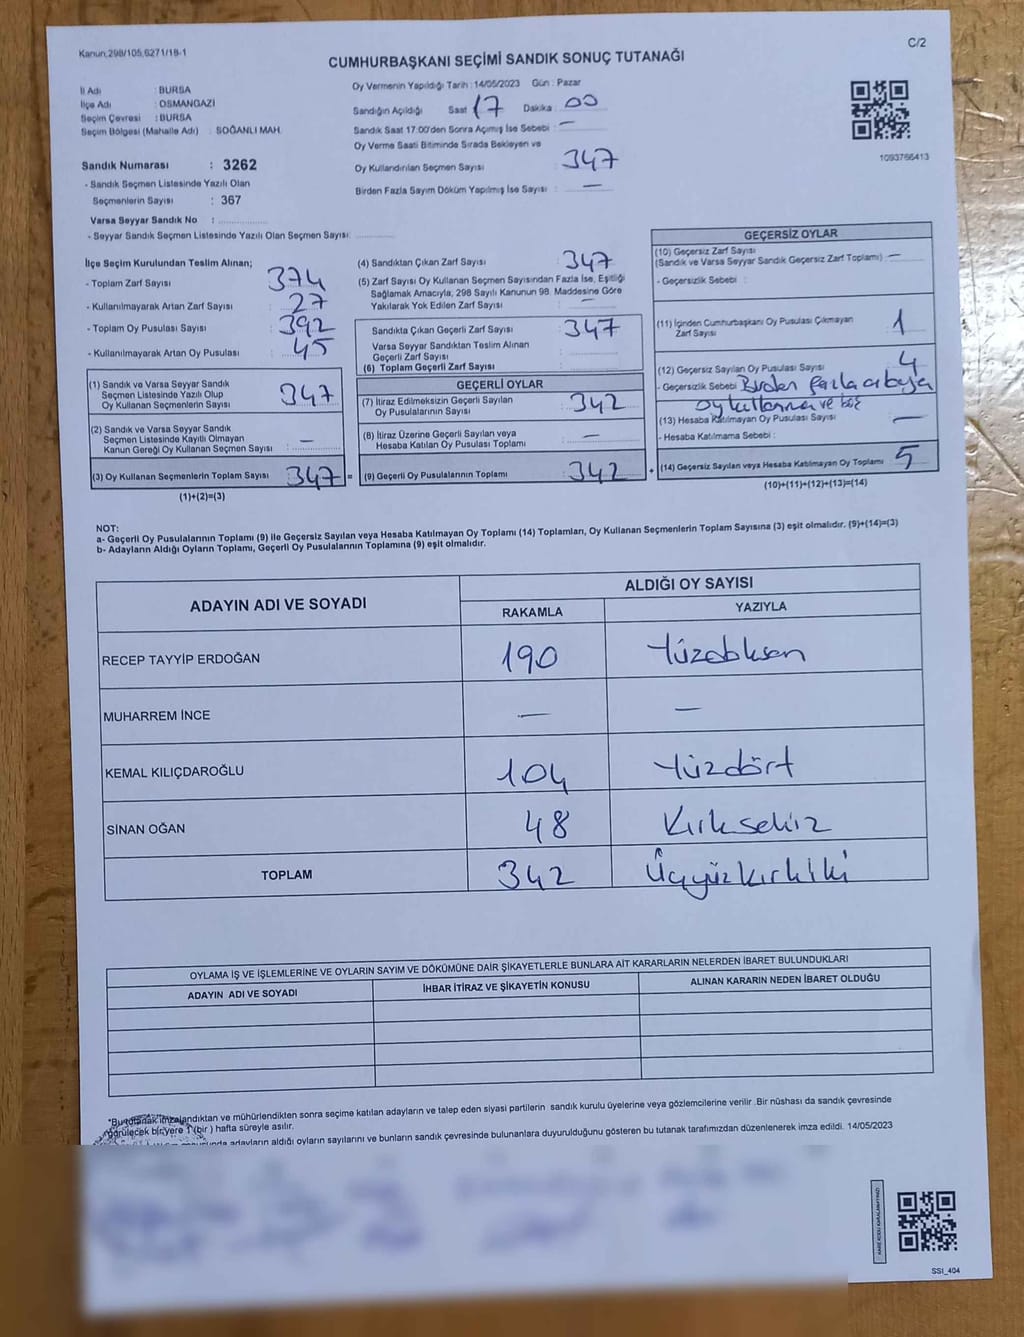 Kanun:298/105,6271/18-1
C/2
CUMHURBAŞKANI SEÇİMİ SANDIK SONUÇ TUTANAĞI
İl Adı : BURSA
İlçe Adı : OSMANGAZİ
Seçim Çevresi : BURSA
Seçim Bölgesi (Mahalle Adı) : SOĞANLI MAH.
Sandık Numarası : 3262
- Sandık Seçmen Listesinde Yazılı Olan
Seçmenlerin Sayısı : 367
Varsa Seyyar Sandık No :
- Seyyar Sandık Seçmen Listesinde Yazılı Olan Seçmen Sayısı:
Oy Vermenin Yapıldığı Tarih : 14/05/2023 Gün : Pazar
Sandığın Açıldığı Saat 17 Dakika : 00
Sandık Saat 17:00'den Sonra Açımış İse Sebebi : —
Oy Verme Saati Bitiminde Sırada Bekleyen ve
Oy Kullandırılan Seçmen Sayısı : 347
Birden Fazla Sayım Döküm Yapılmış İse Sayısı : —
1093766413
İlçe Seçim Kurulundan Teslim Alınan;
- Toplam Zarf Sayısı : 374
- Kullanılmayarak Artan Zarf Sayısı : 27
- Toplam Oy Pusulası Sayısı : 392
- Kullanılmayarak Artan Oy Pusulası : 45
(1) Sandık ve Varsa Seyyar Sandık
Seçmen Listesinde Yazılı Olup
Oy Kullanan Seçmenlerin Sayısı : 347
(2) Sandık ve Varsa Seyyar Sandık
Seçmen Listesinde Kayıtlı Olmayan
Kanun Gereği Oy Kullanan Seçmen Sayısı : —
(3) Oy Kullanan Seçmenlerin Toplam Sayısı : 347 =
(1)+(2)=(3)
(4) Sandıktan Çıkan Zarf Sayısı : 347
(5) Zarf Sayısı Oy Kullanan Seçmen Sayısından Fazla İse, Eşitliği
Sağlamak Amacıyla, 298 Sayılı Kanunun 98. Maddesine Göre
Yakılarak Yok Edilen Zarf Sayısı : —
Sandıkta Çıkan Geçerli Zarf Sayısı : 347
Varsa Seyyar Sandıktan Teslim Alınan
Geçerli Zarf Sayısı :
(6) Toplam Geçerli Zarf Sayısı :
GEÇERLİ OYLAR
(7) İtiraz Edilmeksizin Geçerli Sayılan
Oy Pusulalarının Sayısı : 342
(8) İtiraz Üzerine Geçerli Sayılan veya
Hesaba Katılan Oy Pusulası Toplamı : —
(9) Geçerli Oy Pusulalarının Toplamı : 342 +
GEÇERSİZ OYLAR
(10) Geçersiz Zarf Sayısı
(Sandık ve Varsa Seyyar Sandık Geçersiz Zarf Toplamı) : —
- Geçersizlik Sebebi :
(11) İçinden Cumhurbaşkanı Oy Pusulası Çıkmayan
Zarf Sayısı : 1
(12) Geçersiz Sayılan Oy Pusulası Sayısı : 4
- Geçersizlik Sebebi Birden fazla adaya
oy kullanma ve boş
(13) Hesaba Katılmayan Oy Pusulası Sayısı : —
- Hesaba Katılmama Sebebi :
(14) Geçersiz Sayılan veya Hesaba Katılmayan Oy Toplamı : 5
(10)+(11)+(12)+(13)=(14)
NOT:
a- Geçerli Oy Pusulalarının Toplamı (9) ile Geçersiz Sayılan veya Hesaba Katılmayan Oy Toplamı (14) Toplamları, Oy Kullanan Seçmenlerin Toplam Sayısına (3) eşit olmalıdır. (9)+(14)=(3)
b- Adayların Aldığı Oyların Toplamı, Geçerli Oy Pusulalarının Toplamına (9) eşit olmalıdır.
ADAYIN ADI VE SOYADI
ALDIĞI OY SAYISI
RAKAMLA YAZIYLA
RECEP TAYYİP ERDOĞAN 190 Yüzdoksan
MUHARREM İNCE — —
KEMAL KILIÇDAROĞLU 104 Yüzdört
SİNAN OĞAN 48 Kırksekiz
TOPLAM 342 Üçyüzkırkiki
OYLAMA İŞ VE İŞLEMLERİNE VE OYLARIN SAYIM VE DÖKÜMÜNE DAİR ŞİKAYETLERLE BUNLARA AİT KARARLARIN NELERDEN İBARET BULUNDUKLARI
ADAYIN ADI VE SOYADI İHBAR İTİRAZ VE ŞİKAYETİN KONUSU ALINAN KARARIN NEDEN İBARET OLDUĞU
*Bu tutanak imzalandıktan ve mühürlendikten sonra seçime katılan adayların ve talep eden siyasi partilerin sandık kurulu üyelerine veya gözlemcilerine verilir. Bir nüshası da sandık çevresinde
görülecek bir yere 1 (bir ) hafta süreyle asılır.
adayların aldığı oyların sayılarını ve bunların sandık çevresinde bulunanlara duyurulduğunu gösteren bu tutanak tarafımızdan düzenlenerek imza edildi. 14/05/2023
SSI_404